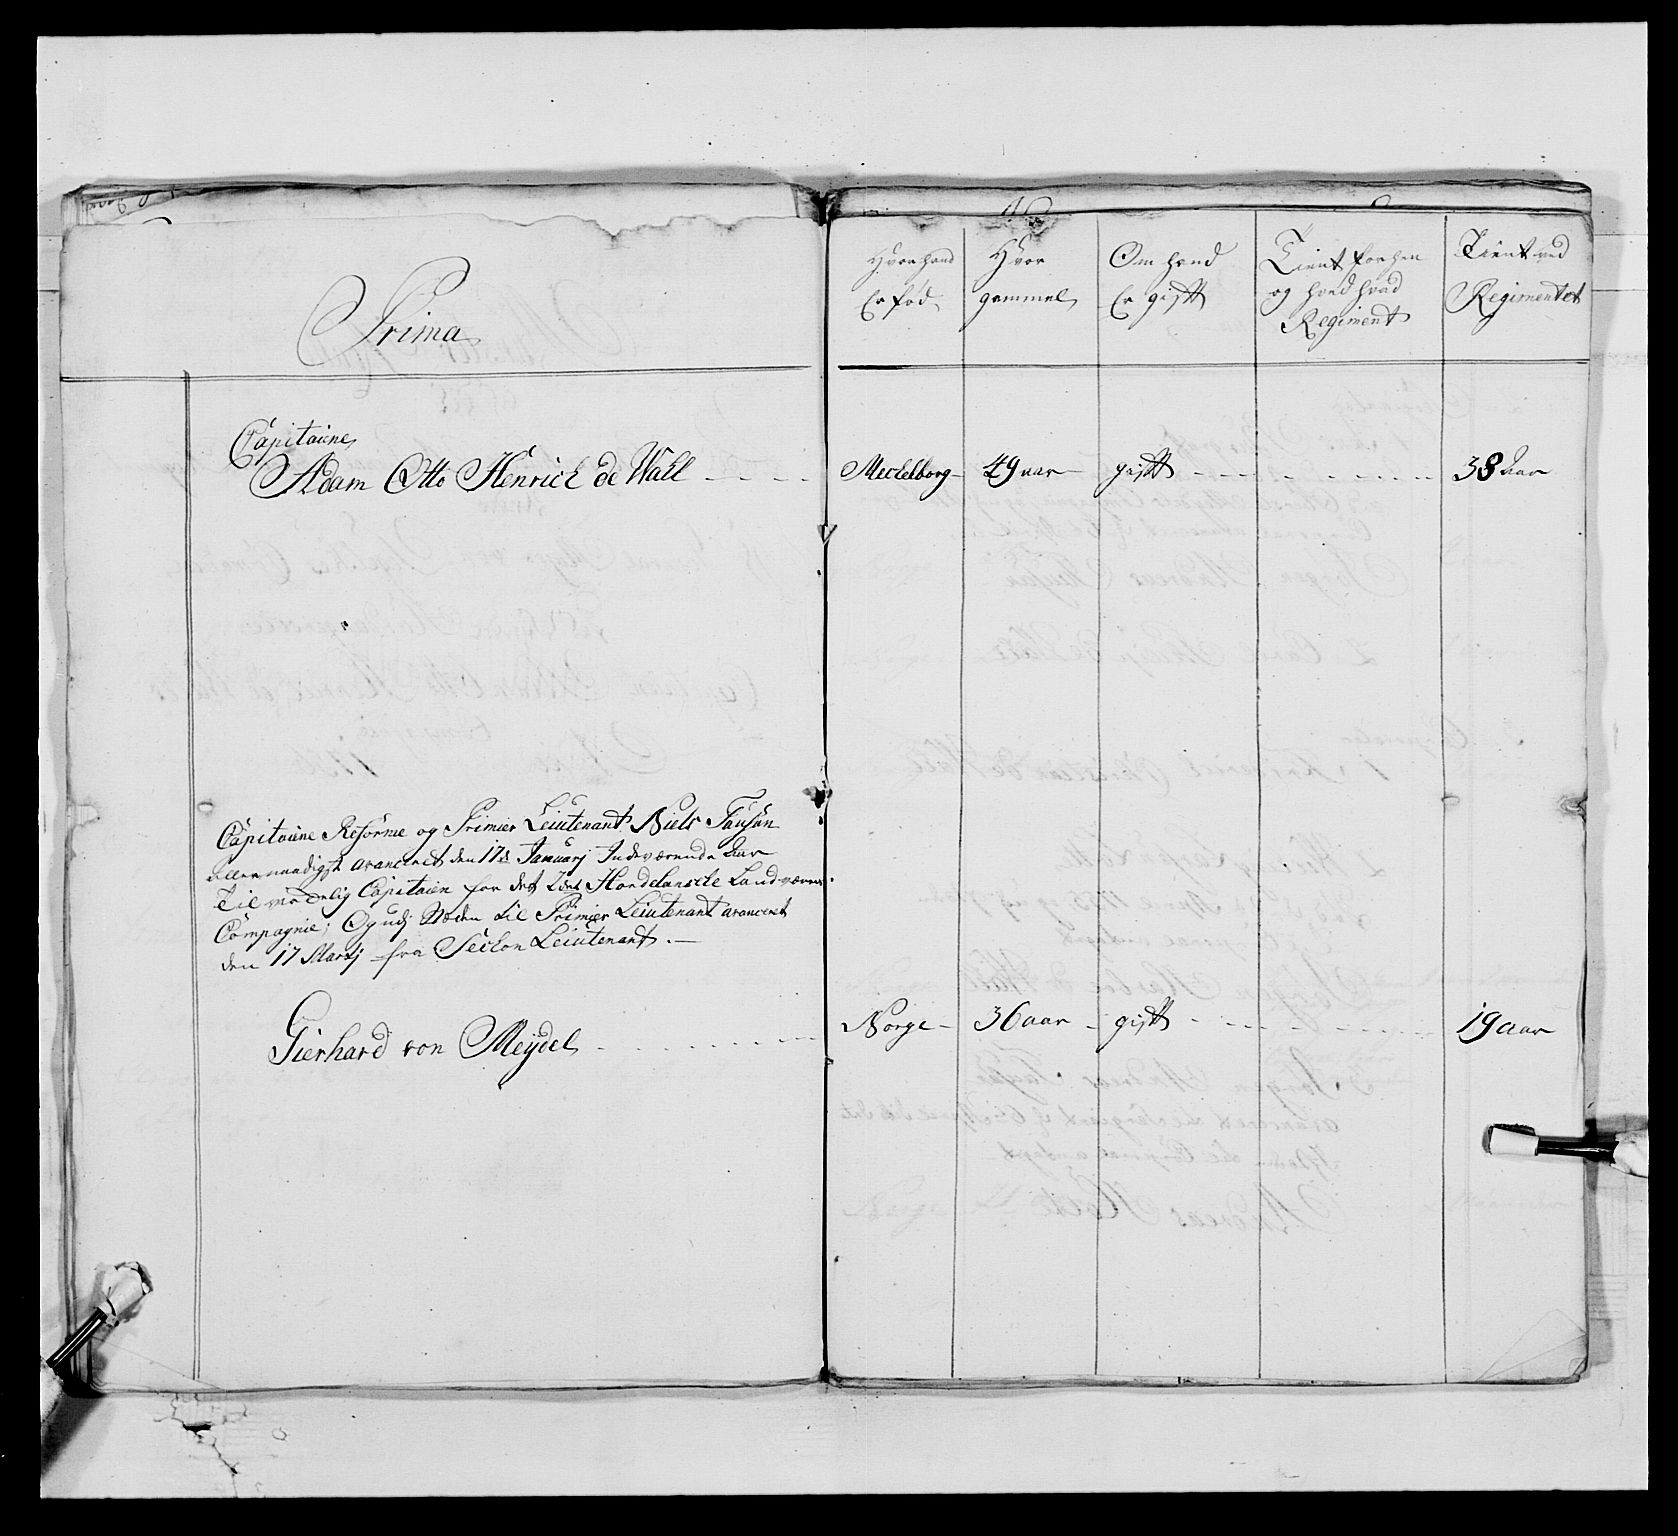 Prima
Hvor hand
Er fød
Hvor
gammel
Om hand
Er gift
Tient forhen
og hved hvad
Regiment
Tient ved
Regimentet
Capitaine
Adam Otto Henrich de Wall
Mecklborg
49 aar
gift
38 aar
Capitaine Reforme og Primier Leiutenant Niels Tausan
allernaadigst avanceret den 17de Januarj Indeværende Aar
Til virckelig Capitaien for det 2det Hordelanscke Landværns
Compagnie; Og udj Steden til Primier Leiutenant avanceret
den 17 Martj fra Seckon Leiutenant.
Gierhard von Meydel
Norge
36 aar
gift
19 aar